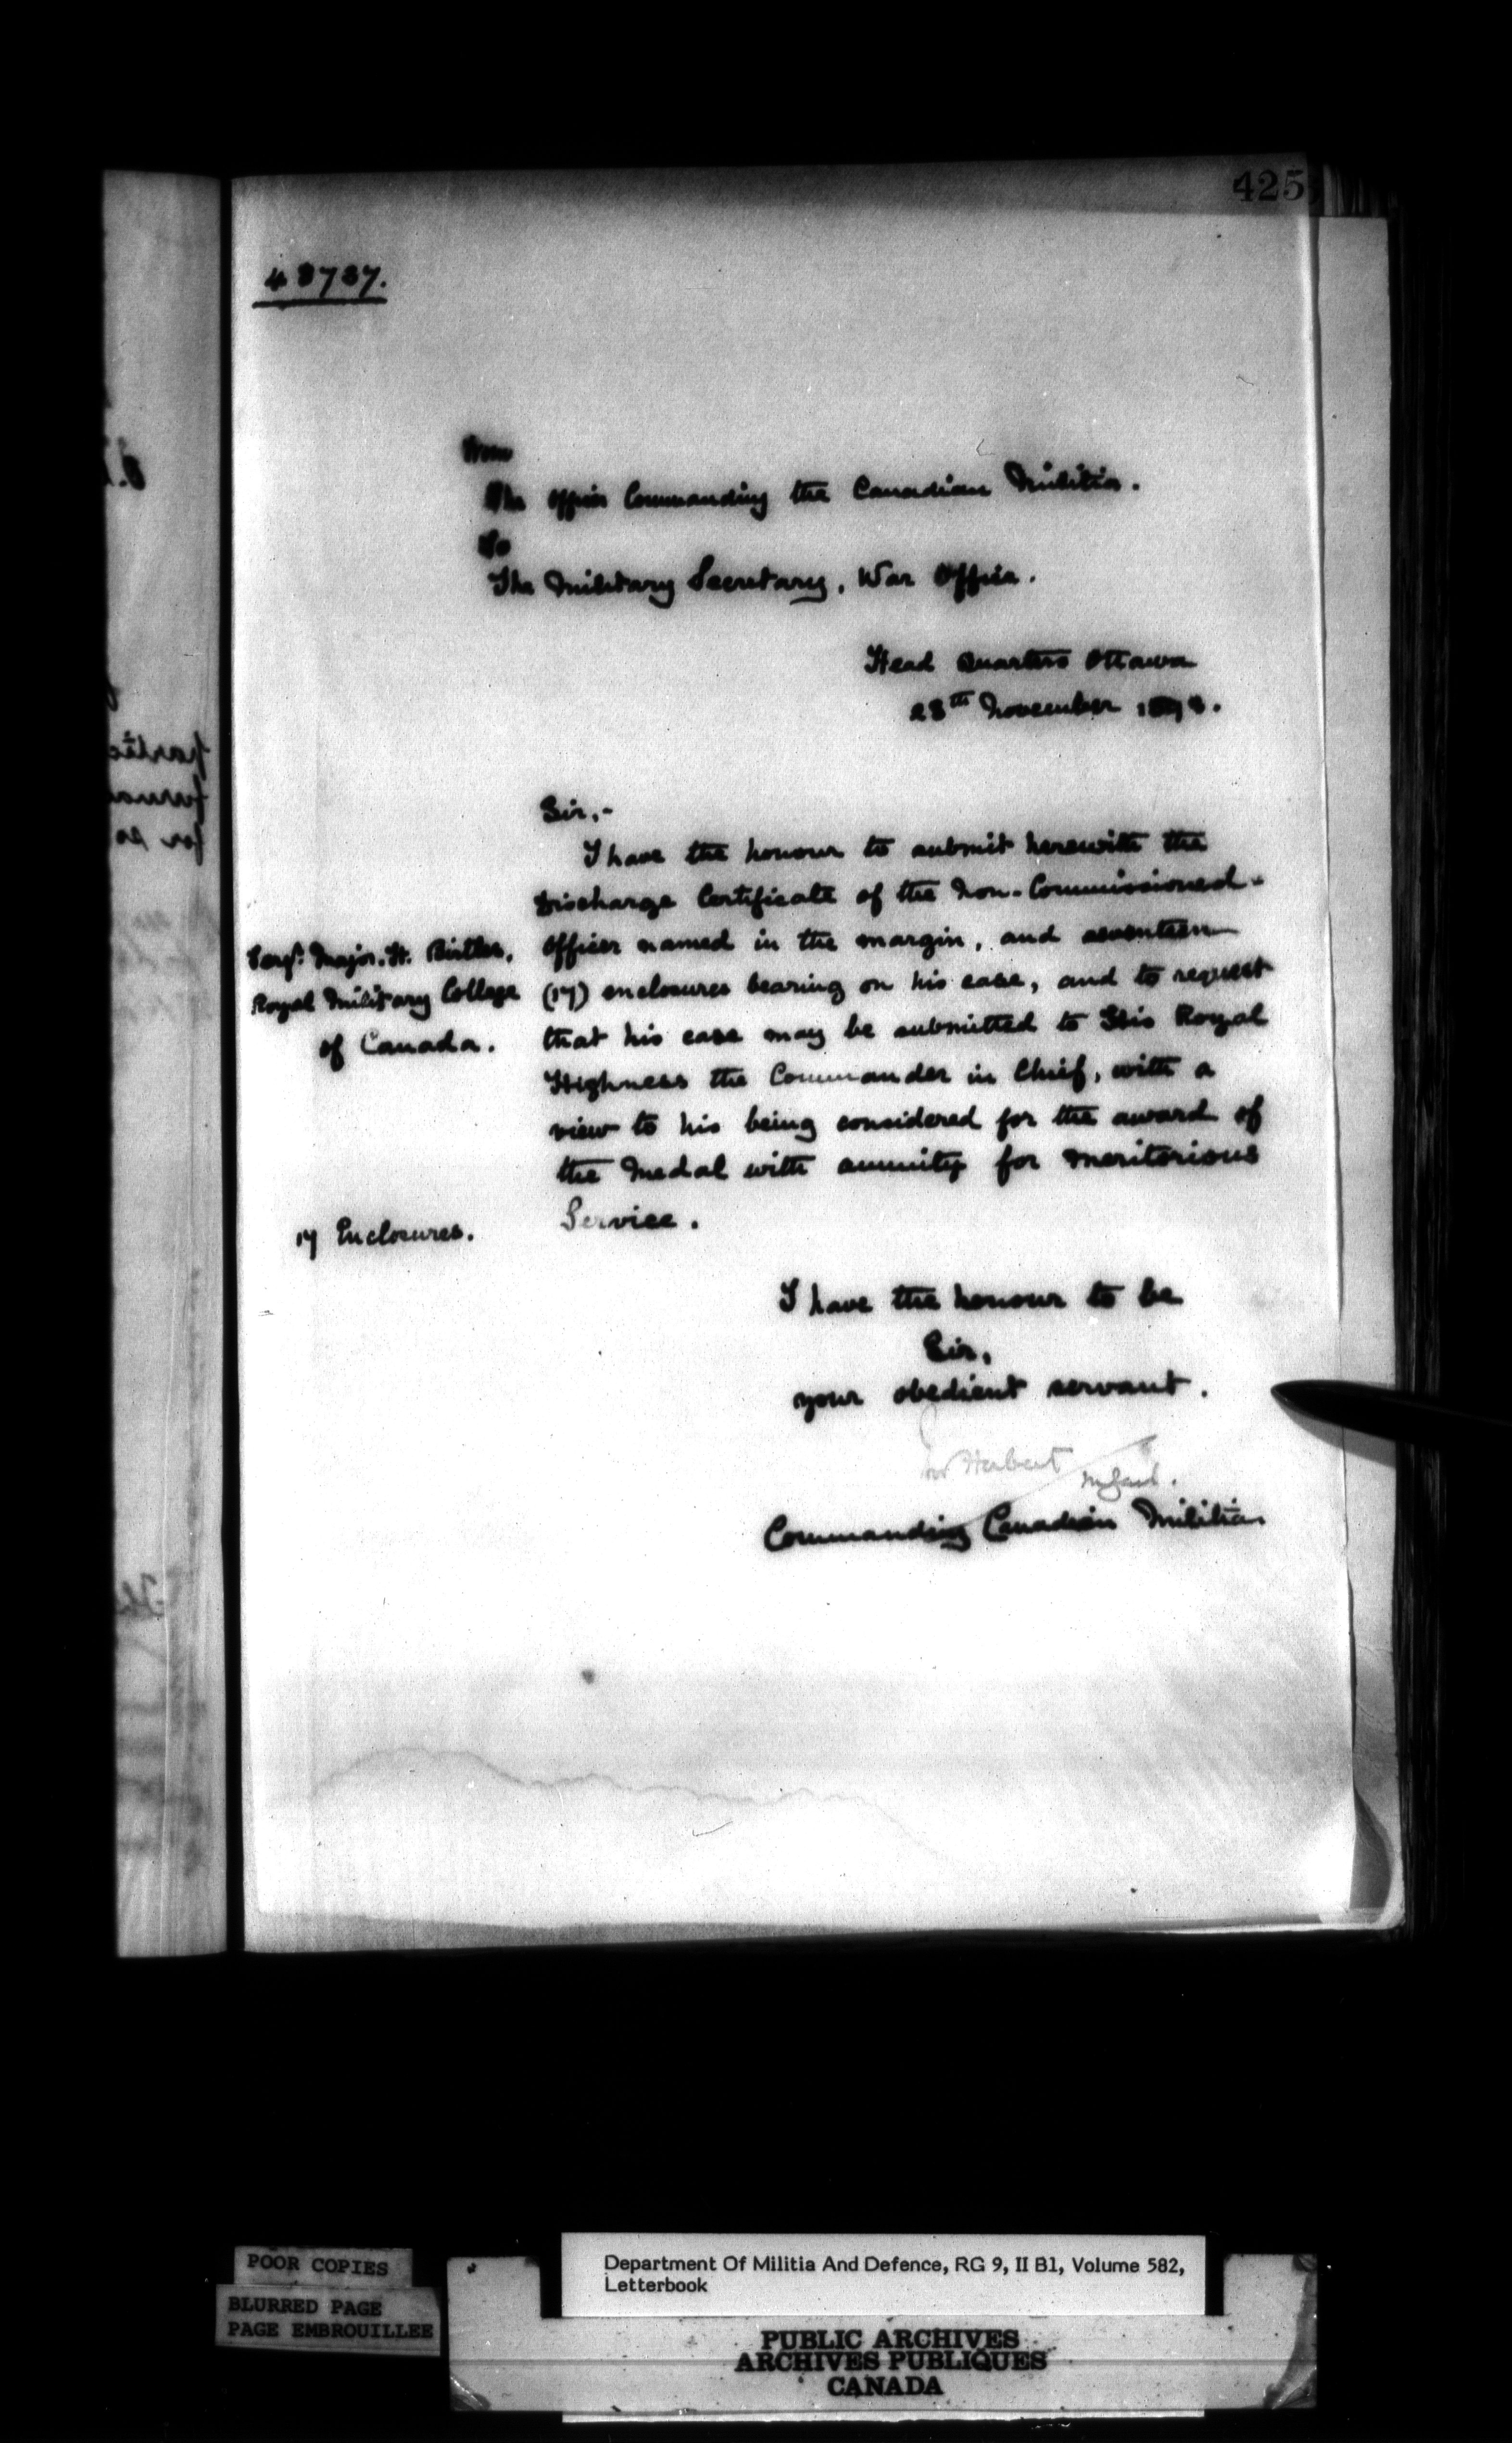 425
48787.
From
The Officer Commanding the Canadian Militia.
To
The Military Secretary, War Office.
Head Quarters Ottawa
28th November 1893.
Sir,-
I have the honour to submit herewith the
Discharge Certificate of the Non-Commissioned-
Officer named in the margin, and seventeen
Sergt. Major. H. Birtles,
Royal Military College
of Canada.
(17) enclosures bearing on his case, and to request
that his case may be submitted to His Royal
Highness the Commander in Chief, with a
view to his being considered for the award of
the Medal with annuity for Meritorious
Service.
17 Enclosures.
I have the honour to be
Sir,
your obedient servant.
Herbert
M Genl.
Commanding Canadian Militia
POOR COPIES
BLURRED PAGE
PAGE EMBROUILLEE
Department Of Militia And Defence, RG 9, II B1, Volume 582,
Letterbook
PUBLIC ARCHIVES
ARCHIVES PUBLIQUES
CANADA